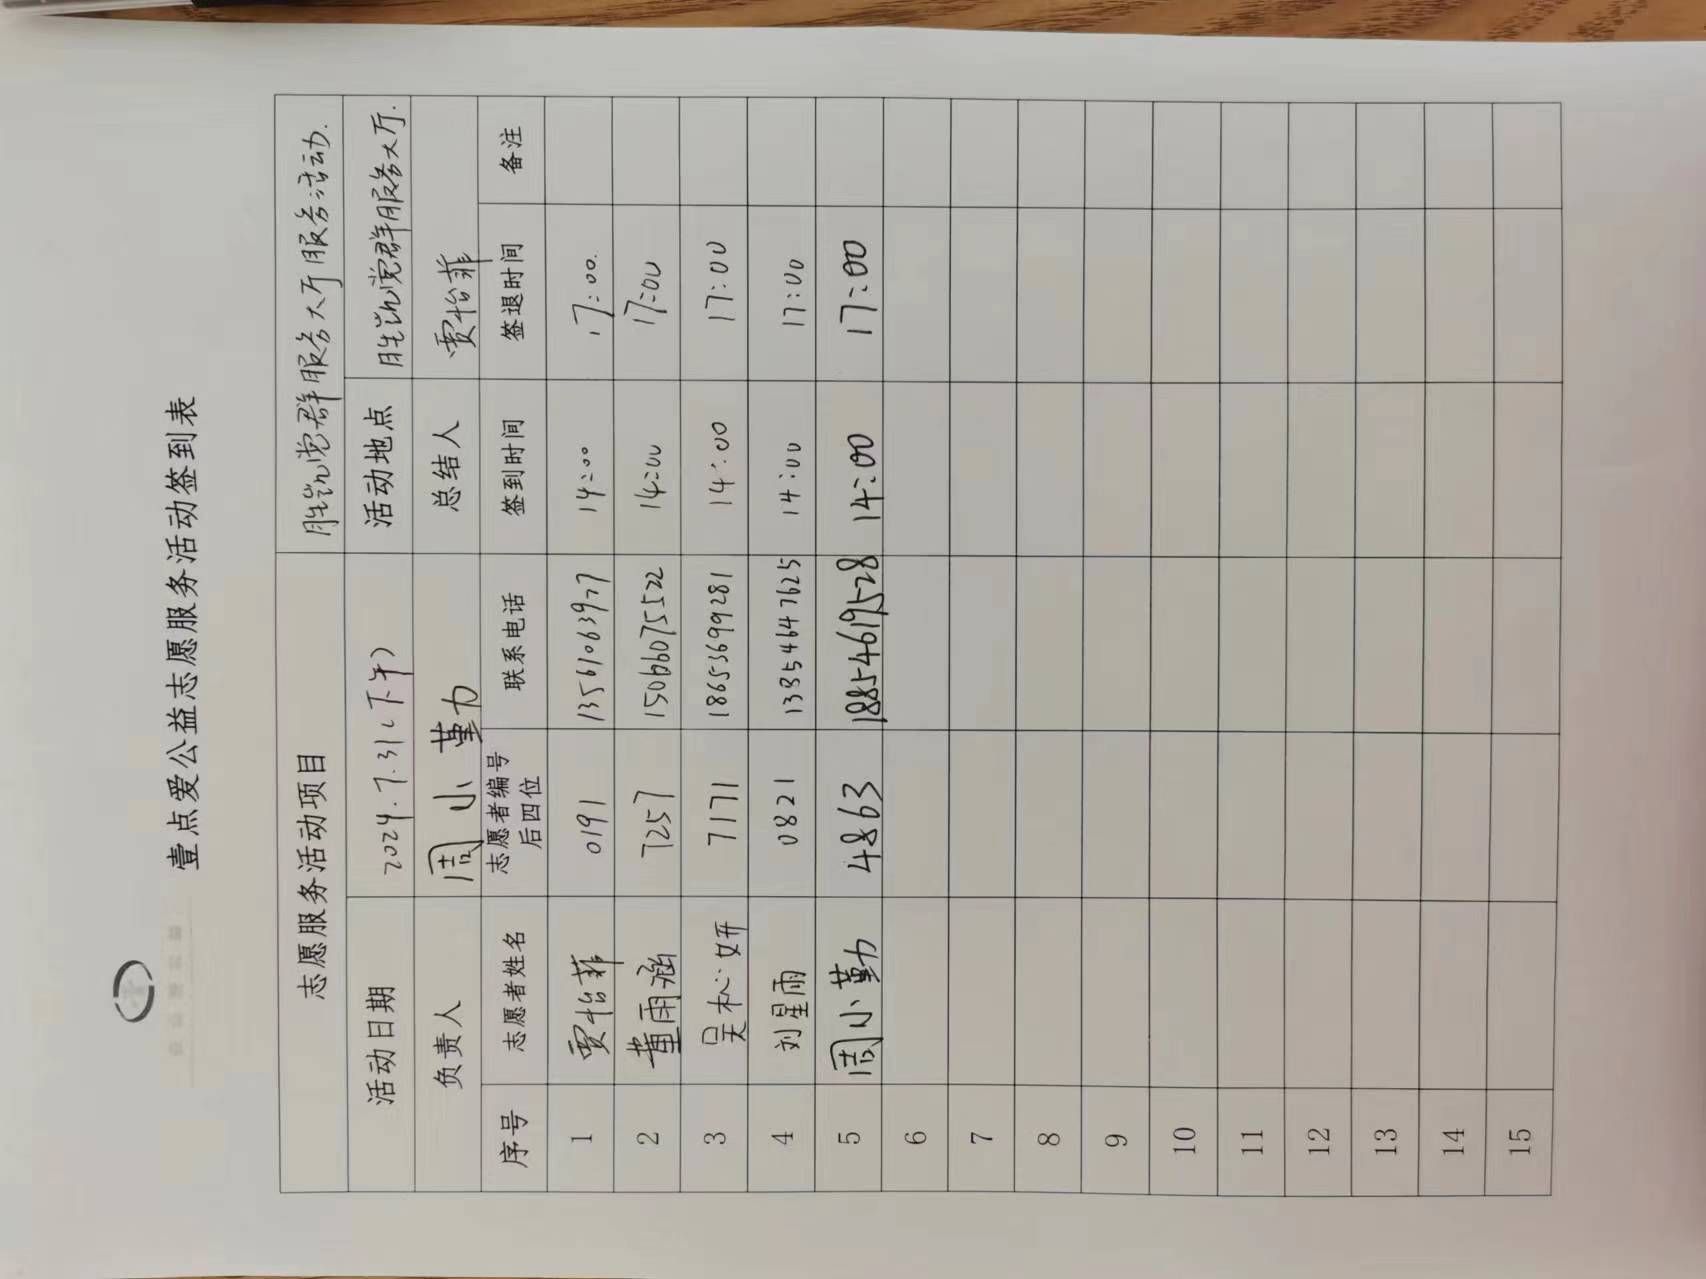 壹点爱公益志愿服务活动签到表
志愿服务活动项目 胜凯党群服务大厅服务活动.
活动日期 2024.7.31(下午) 活动地点 胜凯党群服务大厅.
负责人 周小勤 总结人 贾怡菲
序号 志愿者姓名 志愿者编号后四位 联系电话 签到时间 签退时间 备注
1 贾怡菲 0191 13561063977 14:00 17:00.
2 董雨涵 7257 15066075522 14:00 17:00
3 吴松妍 7171 18653699281 14:00 17:00
4 刘星雨 0821 13354647625 14:00 17:00
5 周小勤 4863 18854619528 14:00 17:00
6
7
8
9
10
11
12
13
14
15